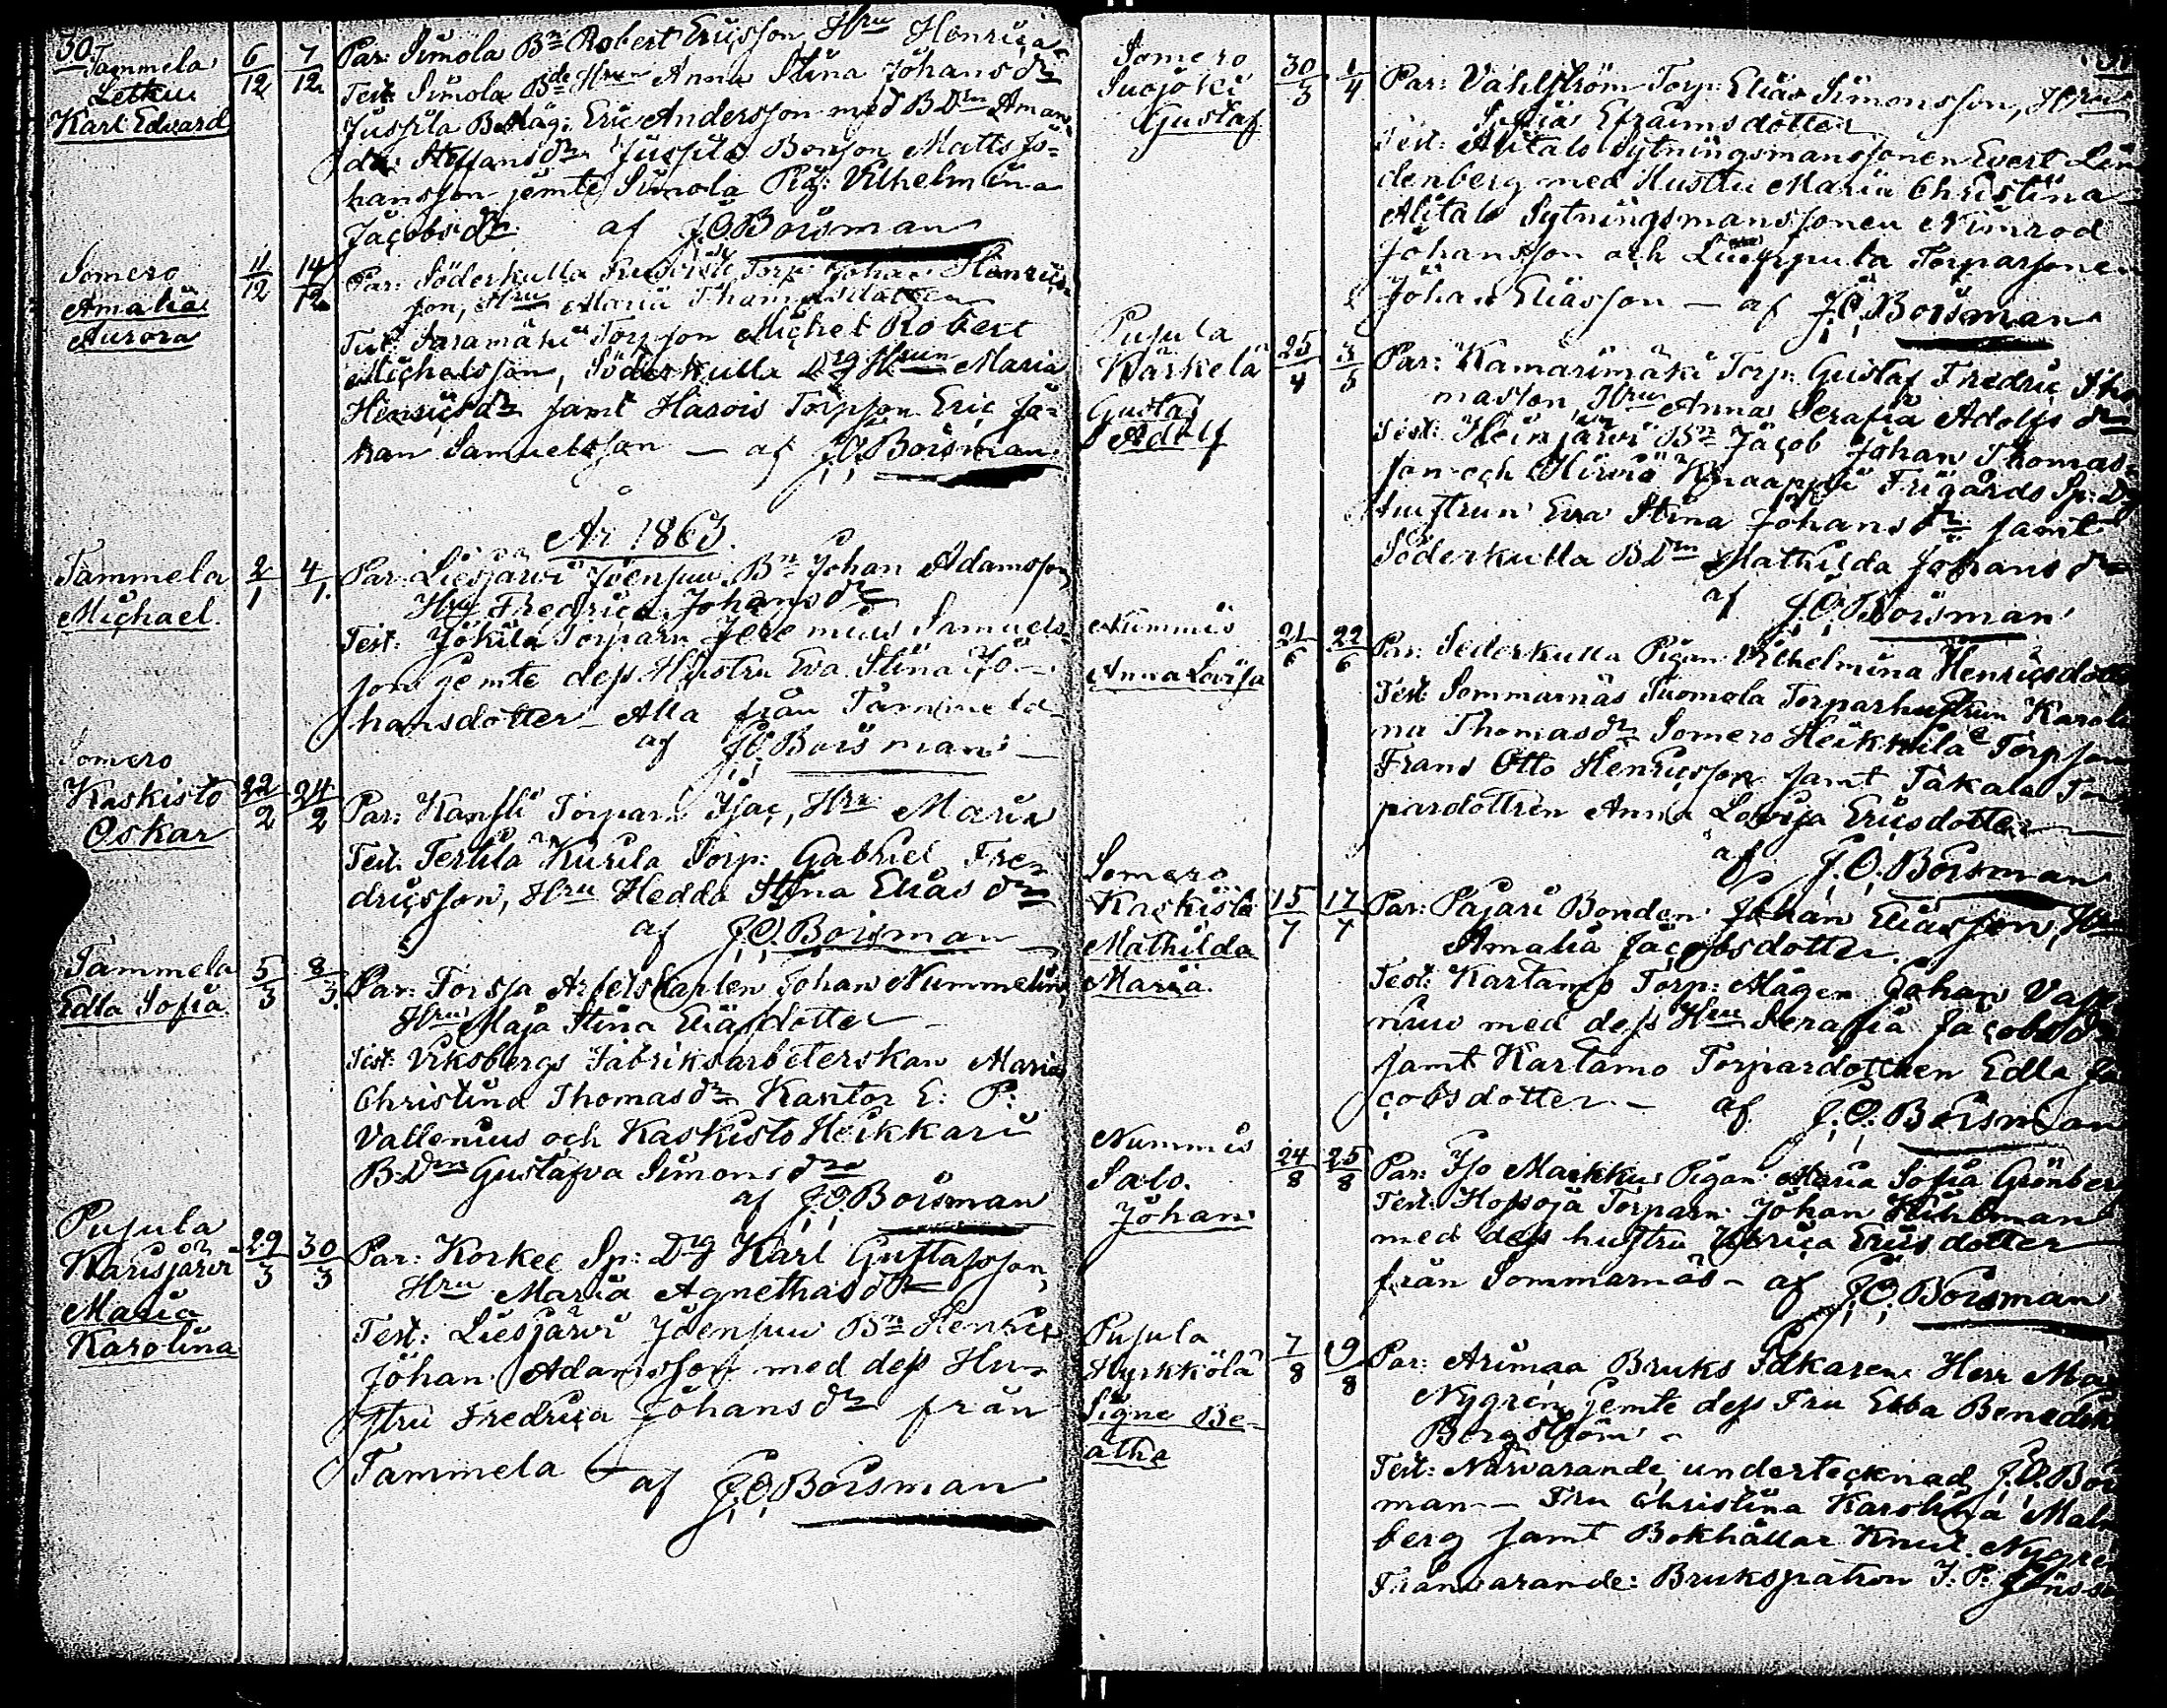 30.
Tammela
Letku
Karl Edvard
6/12 7/12
Par: Simola Bn Robert Ericsson, Hru Henrica
Test: Simola Bde Hrun Anna Stina Johansdr
Jussila Bdmåg: Eric Andersson med BDrn Aman-
da Staffansdr Jussila Bonson Matts Jo-
hansson jemte Simola Pig: Vilhelmina
Jacobsdr af J.O. Boisman
Somero
Amalia
Aurora
11/12 14/12
Par: Söderkulla Torp: Johan Henrics-
son, Hru Maria Thomasdotter
Test: Saramäki Torpson Michel Robert
Michelsson, Söderkulla Drg Hrun Maria
Henricsdr samt Harois Torpson Eric Jo-
han Samuelsson — af J.O. Boisman
År 1863.
Tammela
Michael.
2/1 4/1.
Par: Liesjärvi Joensuu Bn Johan Adamsson
Hru Fredrica Johansdr
Test: Jokila Torparn Jeremias Samuels-
son jemte dess Hustru Eva Stina Jo-
hansdotter Alla från Tammela
af J.O. Boisman
Somero
Kaskisto
Oskar
22/2 24/2
Par: Torparn Isac, Hru Maria
Test: Terttilä Kurila Torp: Gabriel Fre-
dricsson, Hru Hedda Stina Eliasdr
af J.O. Boisman
Tammela
Edla Sofia
5/3 8/3.
Par: Forssa Arbetskarlen Johan Nummelin,
Hru Maja Stina Eliasdotter
Test: Viksbergs Fabriksarbeterskan Maria
Christina Thomasdr Kantor E: P:
Vallenius och Kaskisto Heikkari
BDrn Gustafva Simonsdr
af J.O. Boisman
Pusula
Karisjärvi
Maria
Karolina
29/3 30/3
Par: Korkee Sp: Drg Karl Gustafsson,
Hru Maria Agnethasdr
Test: Liesjärvi Joensuu Bn Henric
Johan Adamsson med dess Hu-
stru Fredrica Johansdr från
Tammela — af J.O. Boisman
Somero
Suojoki
Gustaf
30/3 1/4
Par: Vahlström Torp: Elias Simonsson, Hru
Sofia Efraimsdotter
Test: Alitalo Sytningsmanssonen Evert Lin
denberg med Hustru Maria Christina
Alitalo Sytningsmanssonen Nimrod
Johansson och Torparsonen
Johan Eliasson — af J.O. Boisman
Pusula
Kärkelä
Gustaf
Adolf
25/4 3/5
Par: Kamarimäki Torp: Gustaf Fredric Tho
masson, Hrun Anna Serafia Adolfsdr
Test: Heinjärvi Bn Jacob Johan Thomas-
son och Hirviö Knaapila Frigårds Sp: Drg
hustrun Eva Stina Johansdr samt
Söderkulla BDrn Mathilda Johansdr
af J.O. Boisman
Nummis
Anna Lovisa
21/6 22/6
Par: Söderkulla Pigan Vilhelmina Henricsdotter
Test: Sommarnäs Tuomola Torparhustrun Karoli
na Thomasdr Somero Heikkilä Torpson
Frans Otto Henricsson samt Takala Tor
pardottren Anna Lovisa Ericsdotter
af J.O. Boisman
Somero
Kaskisto
Mathilda
Maria.
15/7 17/7
Par: Pajari Bonden Johan Eliasson, Hru
Amalia Jacobsdotter.
Test: Kartamo Torp: Mågen Johan
med dess Hru Serafia Jacobsdr
samt Kartamo Torpardottren Edla Ja
cobsdotter. — af J.O. Boisman
Nummis
Salo.
Johan
24/8 25/8
Par: Iso Markku Pigan Maria Sofia Grönberg
Test: Hopsoja Torparn Johan
med dess hustru Ulrica Ericsdotter
från Sommarnäs — af J.O. Boisman
Pusula
Hyrkkölä
Signe Be-
atha
7/8 19/8
Par: Arimaa Bruks Idkaren Herr
Nygrén jemte dess Fru Ebba Benedik
Bergström
Test: Närvarande: undertecknad J.O. Bois
man — Fru Christina Karolina Malm
berg samt Bokhållar Knut Nygrén
Frånvarande: Brukspatron